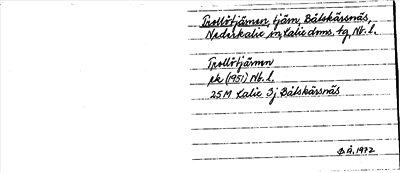 Trollötjärnen, tjärn, Båtskärsnäs,
Nederkalix sn, Kalix dms. tg, Nb. l.
Trollötjärnen
ek (1951) Nb. l.
25M Kalix 3j Båtskärsnäs
1972